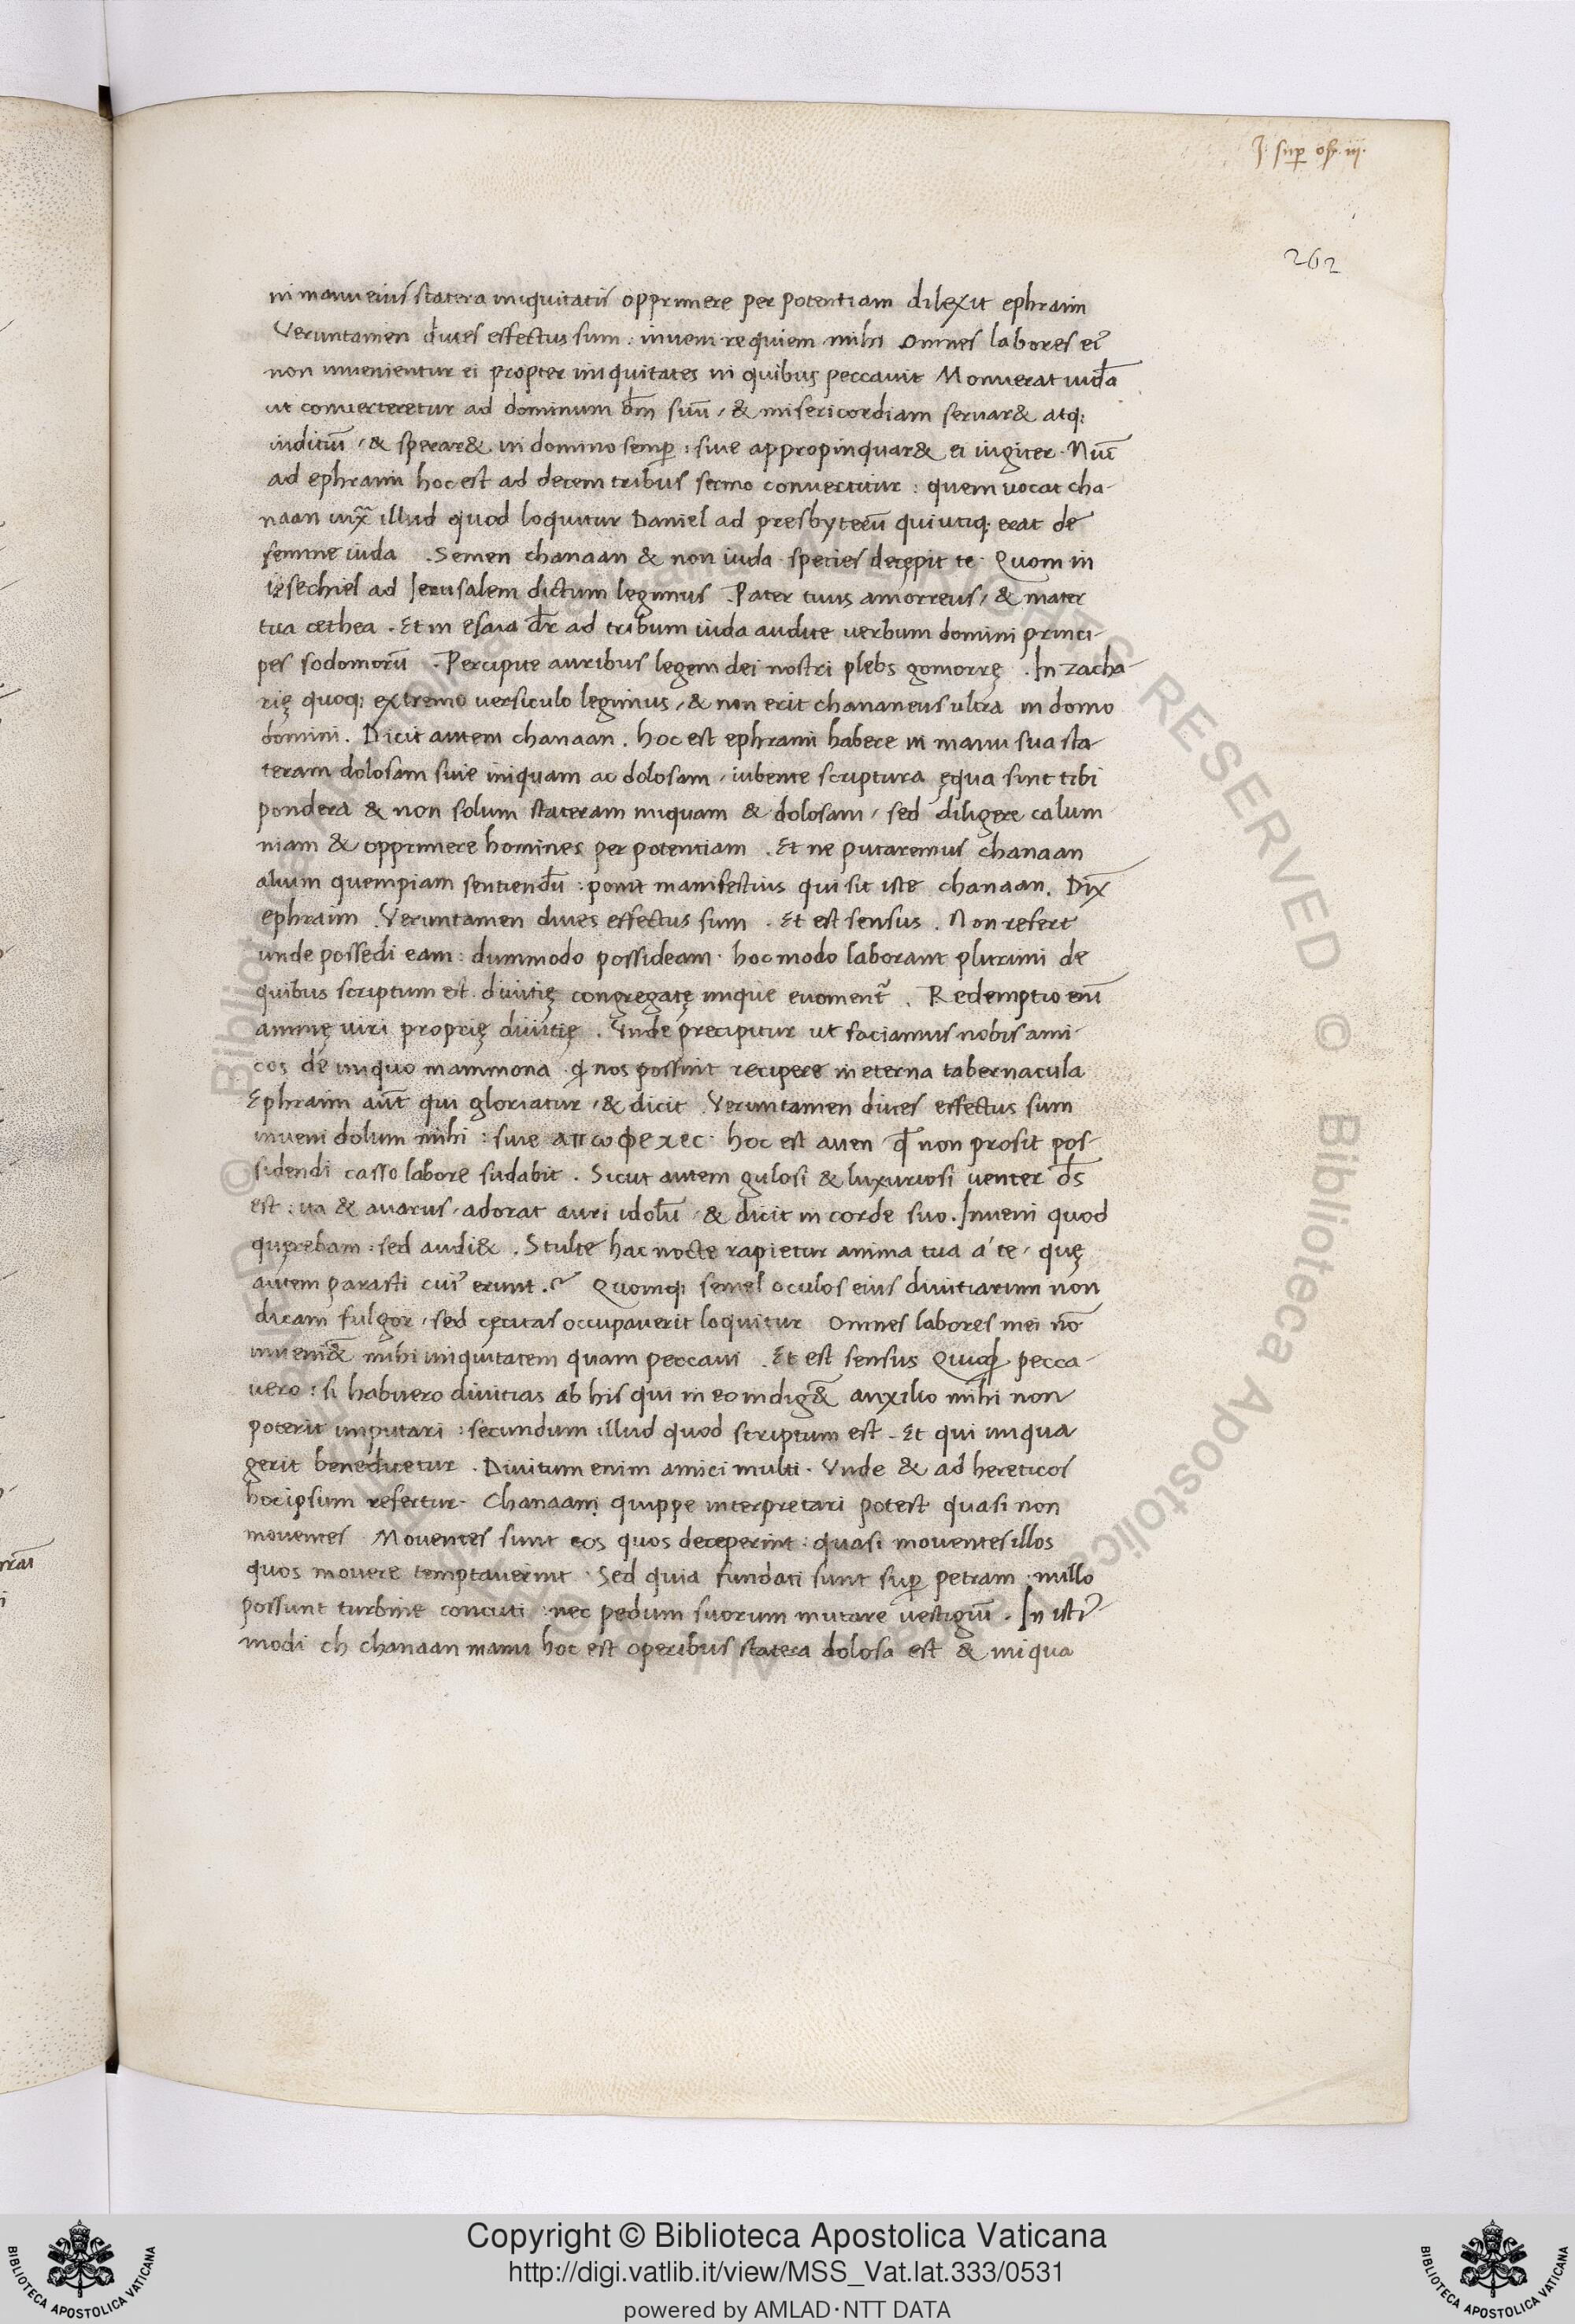 J. sup os. iii.
262
in manu eius statera iniquitatis opprimere per potentiam dilexit ephraim
Veruntamen diues effectus sum : inueni requiem mihi Omnes labores ei᷒
non inuenientur ei propter iniquitates in quibus peccauit Monuerat iudā
ut conuerteretur ad dominum d̄m suū / & misericordiam seruar& atq;
iuditiū / & sperar& in domino semꝑ : siue appropinquar& ei iugiter . Nūc
ad ephraim hoc est ad decem tribus sermo conuertitur : quem uocat cha-
naan iux̄ illud quod loquitur Daniel ad presbyterū qui utiq; erat de
semine iuda . Semen chanaan & non iuda species decepit te . Quom in
iesechiel ad Jerusalem dictum legimus . Pater tuus amorreus / & mater
tua cethea . Et in esaia d̄r ad tribum iuda audite uerbum domini princi-
pes sodomorū . Percipite auribus legem dei nostri plebs gomorrę . In zacha-
rię quoq; extremo uersiculo legimus / & non erit chananeus ultra in domo
domini . Dicit autem chanaan . hoc est ephraim habere in manu sua sta-
teram dolosam siue iniquam ac dolosam / iubente scriptura ęqua sint tibi
pondera & non solum stateram iniquam & dolosam / sed diligere calum
niam & opprimere homines per potentiam . Et ne putaremus chanaan
alium quempiam sentiendū : ponit manifestius qui sit iste chanaan . Dix̄
ephraim . Veruntamen diues effectus sum . Et est sensus . Non refert
unde possedi eam : dummodo possideam . hoc modo laborant plurimi de
quibus scriptum est . diuitię congregatę inique euoment᷑ . Redemptio eni᷒
animę uiri proprię diuitię . Vnde precipitur ut faciamus nobis ami-
cos de iniquo mammona . q̇ nos possint recipere in eterna tabernacula
Ephraim aūt qui gloriatur / & dicit . Veruntamen diues effectus sum
inueni dolum mihi : siue απωφελες . hoc est auen q̄ non prosit pos-
sidendi casso labore sudabit . Sicut autem gulosi & luxuriosi uenter d̄s
est : ita & auarus / adorat auri idolū / & dicit in corde suo . Inueni quod
querebam : sed audi& . Stulte hac nocte rapietur anima tua á te / quę
autem parasti cui᷒ erunt .? Quomq; semel oculos eius diuitiarum non
dicam fulgor / sed cęcitas occupauerit loquitur Omnes labores mei nō
inueni&̄ mihi iniquitatem quam peccaui . Et est sensus Quicq̇d pecca-
uero : si habuero diuitias ab his qui in eo indig&̄ auxilio mihi non
poterit imputari : secundum illud quod scriptum est . Et qui iniqua
gerit benedicetur . Diuitum enim amici multi . Vnde & ad hereticos
hoc ipsum refertur . Chanaam quippe interpretari potest quasi non
mouentes Mouentes sunt eos quos deceperint : quasi mouentes illos
quos mouere temptauerint . Sed quia fundati sunt suꝑ petram . nullo
possunt turbine concuti : nec pedum suorum mutare uestigiū . In isti᷒-
modi ch chanaan manu hoc est operibus statera dolosa est & iniqua
Copyright © Biblioteca Apostolica Vaticana
http://digi.vatlib.it/view/MSS_Vat.lat.333/0531
powered by AMLAD·NTT DATA